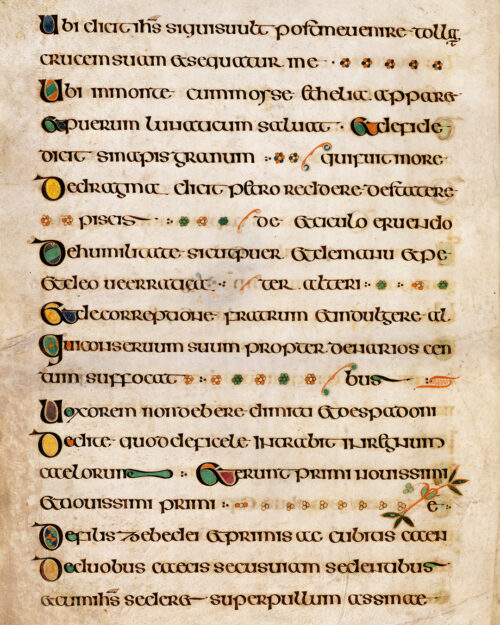 Ubi dicit ihs siquisuult postmeuenire tollat
crucem suam & sequatur me
Ubi inmonte cummoyse & helia appare
& puerum lunaticum saluat · & defide
dicit sinapis granum · quifuit more
Dedragma dicit p&ro reddere destatere
piscis · de & oculo eruendo
Dehumilitate sicutpuer & demanu & pe
& deo ueerratica · ter alteri
& decorreptione fratrum & indulgere al
Quiconseruum suum propter denarios cen
tum suffocat · bus
Uxorem nondebere dimitti & despadoni
Dedite quoddeficele intrabit inregnum
caelorum & erunt primi nouissimi
& nouissimi primi · e
Defilis zebedei & primis ac cubitas caen
Deduobus caecis secusuiam sedentibus
& cumihs seder& superpullum assinae